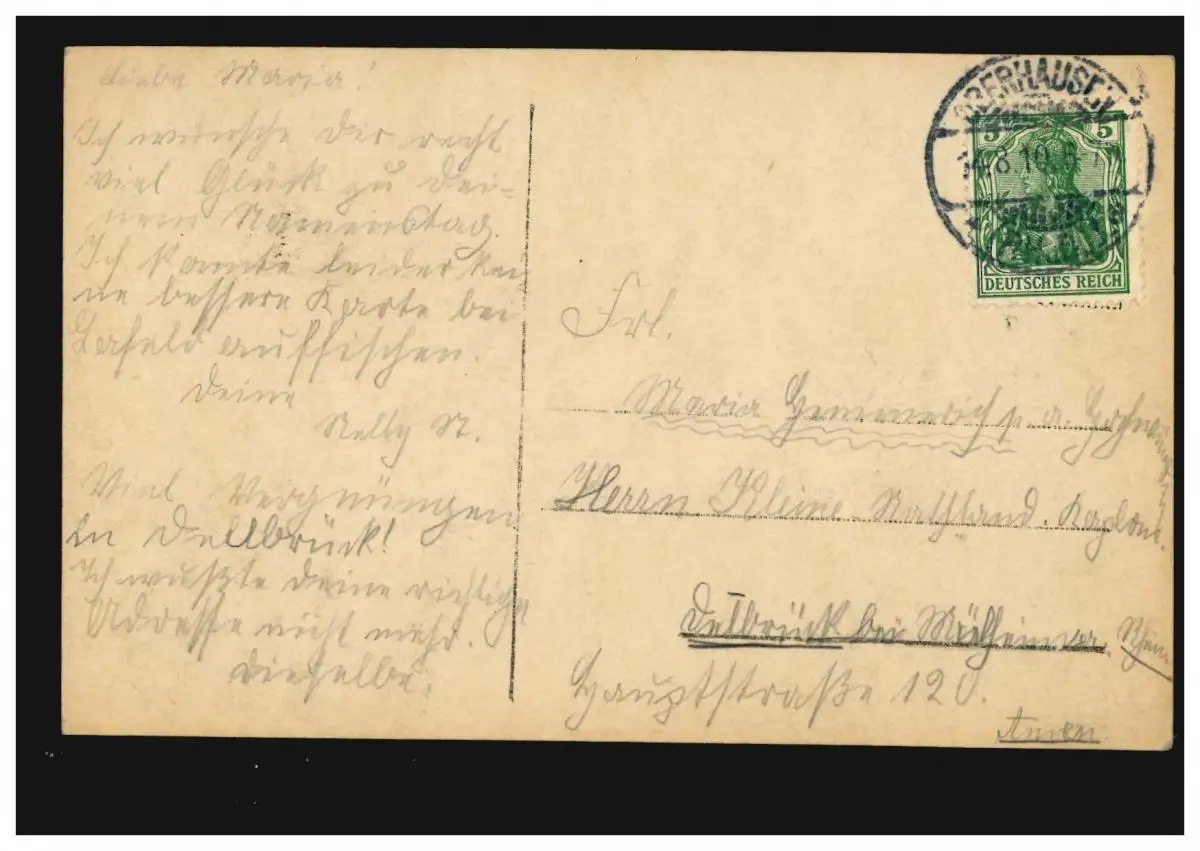 Liebe Maria!
Ich wünsche Dir recht
viel Glück zu Dei-
nem Namenstag.
Ich konnte leider kei
ne bessere Karte bei
auffischen.
Deine
Nelly St.
Viel Vergnügen
in Dellbrück!
Ich wußte deine richtige
Adresse nicht mehr.
Dieselbe.
OBERHAUSEN
8.10. 6-7
5 5
DEUTSCHES REICH
Frl.
Maria
Herrn Kleine
Delbrück bei Mülheim a. Rhein
Hauptstraße 120.